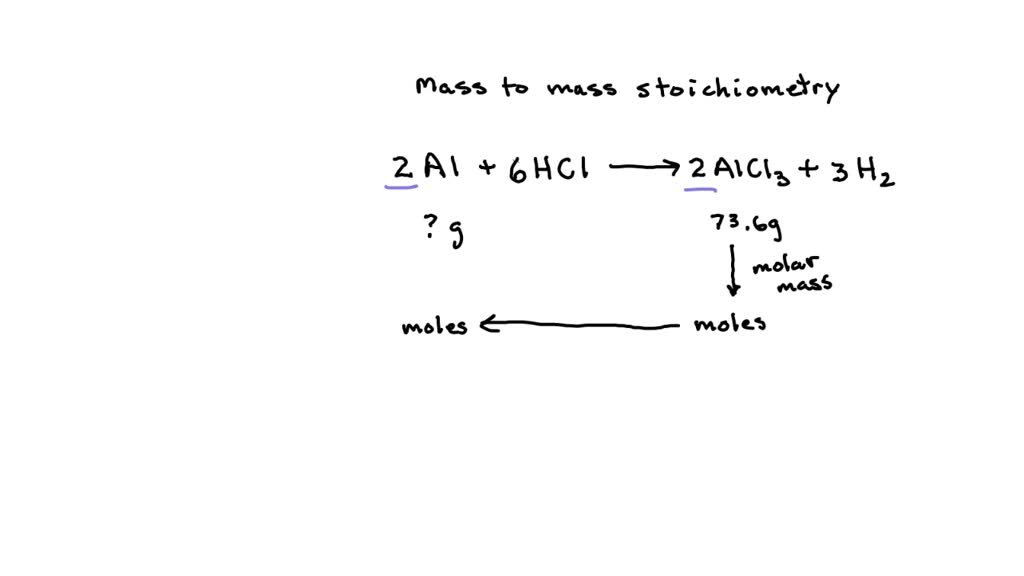 Mass to mass stoichiometry
2Al + 6HCl → 2AlCl₃ + 3H₂
? g 73.6g
molar
mass
moles ← moles